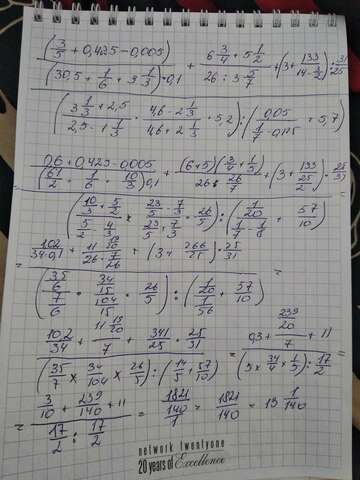 (3/5 + 0,425 − 0,005) / ((30,5 + 1/6 + 3 1/3) · 0,1) + (6 3/4 + 5 1/2) / (26 : 3 5/7) + (3 + 133/(14 − 1 1/2)) : 31/25
((3 1/3 + 2,5) / (2,5 − 1 1/3) · (4,6 − 2 1/3) / (4,6 + 2 1/3) · 5,2) : (0,05 / (1/7 − 0,125) + 5,7)
(0,6 + 0,425 − 0,005) / ((61/2 + 1/6 + 10/3) 0,1) + (6+5)(3/4 + 1/2) / (26 : 26/7) + (3 + 133/(25/2)) · 25/31
((10/3 + 5/2) / (5/2 − 4/3) × (23/5 − 7/3) / (23/5 + 7/3) · 26/5) : ((1/20) / (1/7 − 1/8) + 57/10)
= 102 / (34·0,1) + / (26 · 7/26) + (3+ 266/25) · 25/31 =
((35/6) / (7/6) · (34/15) / (104/15) · 26/5) : ((1/20) / (1/56) + 57/10)
= 10,2/34 + 11 19/20 / 7 + 341/25 · 25/31
(35/7 × 34/104 × 26/5) : (14/5 + 57/10)
= 0,3 + (239/20) / 7 + 11
(5 × 34/4 × 1/5) : 17/2 =
= 3/10 + 239/140 + 11 = (1821/140) / 1 = 1821/140 = 13 1/140
17/2 : 17/2
network twentyone
20 years of Excellence